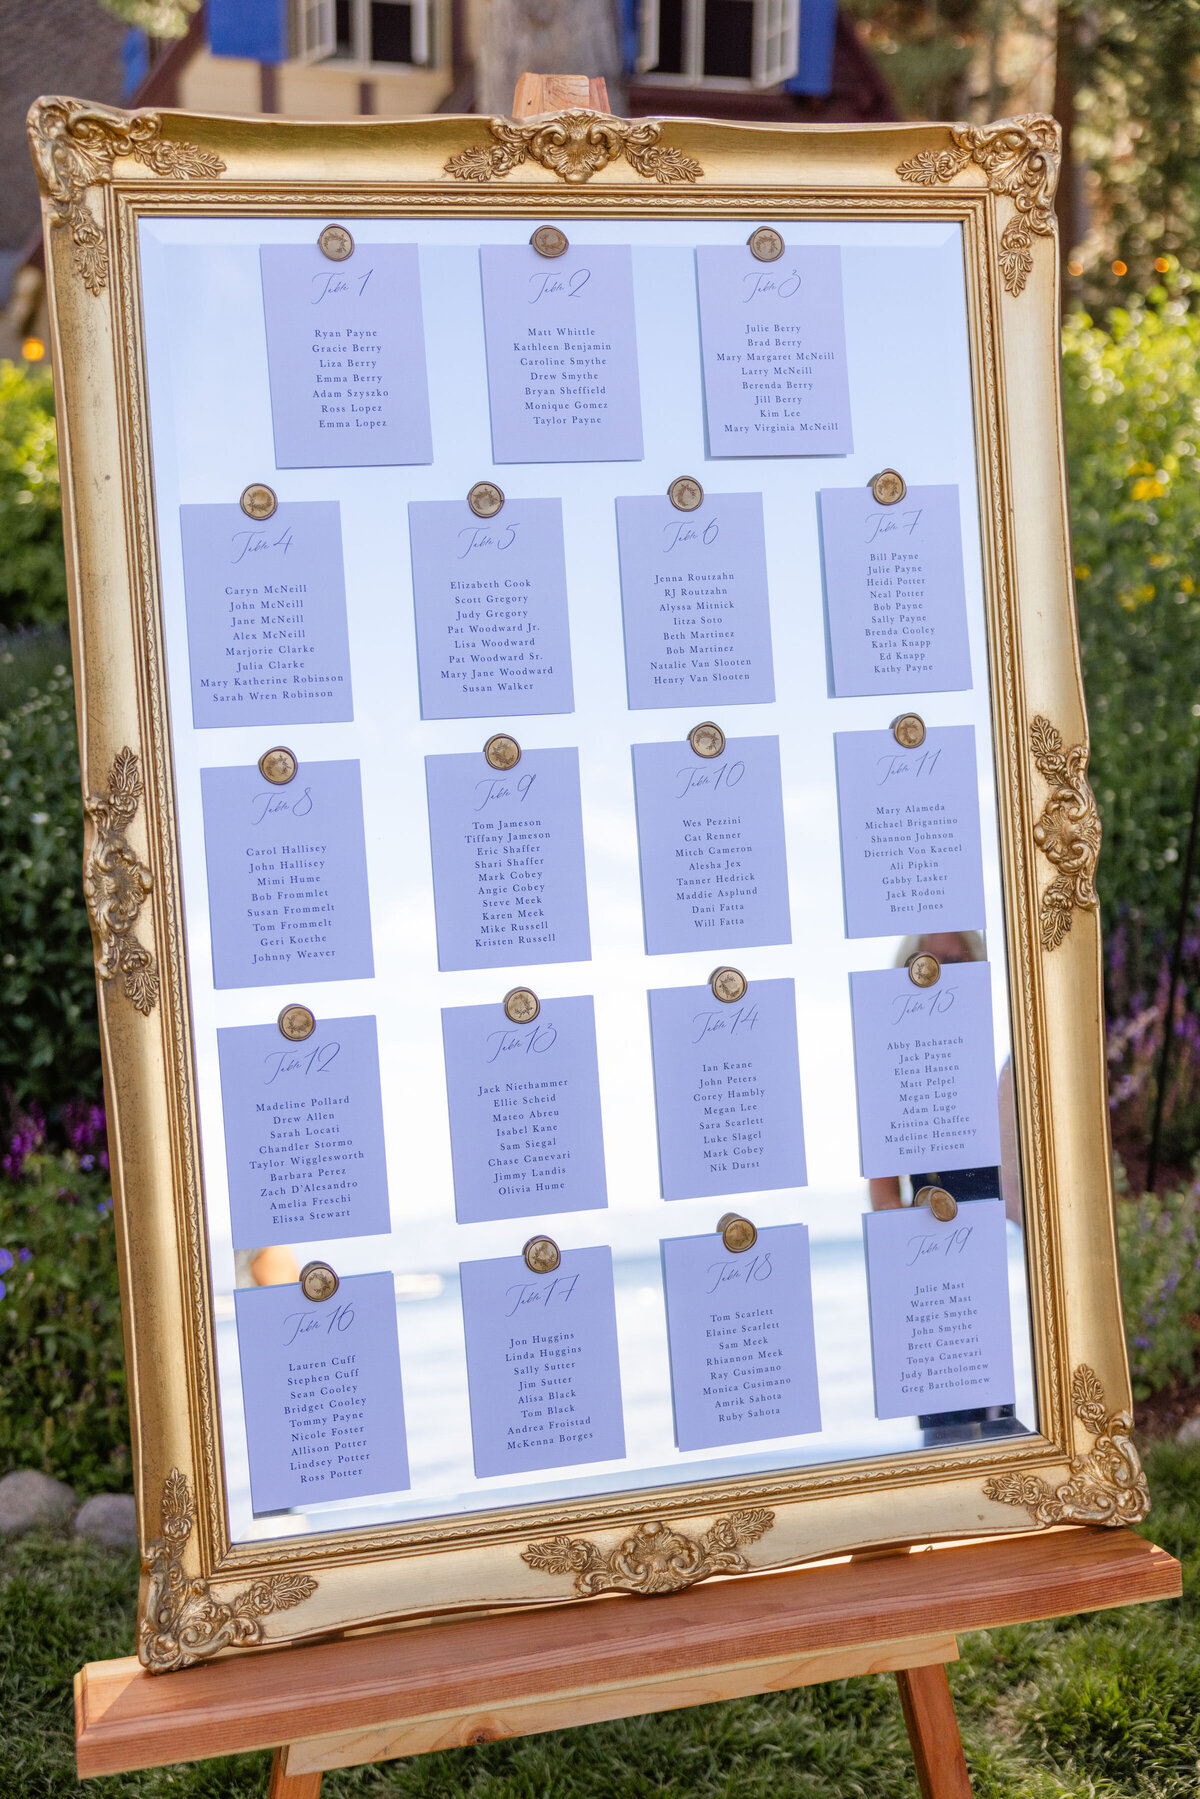 Table 1
Ryan Payne
Gracie Berry
Liza Berry
Emma Berry
Adam Szyszko
Ross Lopez
Emma Lopez
Table 2
Matt Whittle
Kathleen Benjamin
Caroline Smythe
Drew Smythe
Bryan Sheffield
Monique Gomez
Taylor Payne
Table 3
Julie Berry
Brad Berry
Mary Margaret McNeill
Larry McNeill
Berenda Berry
Jill Berry
Kim Lee
Mary Virginia McNeill
Table 4
Caryn McNeill
John McNeill
Jane McNeill
Alex McNeill
Marjorie Clarke
Julia Clarke
Mary Katherine Robinson
Sarah Wren Robinson
Table 5
Elizabeth Cook
Scott Gregory
Judy Gregory
Pat Woodward Jr.
Lisa Woodward
Pat Woodward Sr.
Mary Jane Woodward
Susan Walker
Table 6
Jenna Routzahn
RJ Routzahn
Alyssa Mitnick
Iitza Soto
Beth Martinez
Bob Martinez
Natalie Van Slooten
Henry Van Slooten
Table 7
Bill Payne
Julie Payne
Heidi Potter
Neal Potter
Bob Payne
Sally Payne
Brenda Cooley
Karla Knapp
Ed Knapp
Kathy Payne
Table 8
Carol Hallisey
John Hallisey
Mimi Hume
Bob Frommlet
Susan Frommelt
Tom Frommelt
Geri Koethe
Johnny Weaver
Table 9
Tom Jameson
Tiffany Jameson
Eric Shaffer
Shari Shaffer
Mark Cobey
Angie Cobey
Steve Meek
Karen Meek
Mike Russell
Kristen Russell
Table 10
Wes Pezzini
Cat Renner
Mitch Cameron
Alesha Jex
Tanner Hedrick
Maddie Asplund
Dani Fatta
Will Fatta
Table 11
Mary Alameda
Michael Brigantino
Shannon Johnson
Dietrich Von Kaenel
Ali Pipkin
Gabby Lasker
Jack Rodoni
Brett Jones
Table 12
Madeline Pollard
Drew Allen
Sarah Locati
Chandler Stormo
Taylor Wigglesworth
Barbara Perez
Zach D'Alesandro
Amelia Freschi
Elissa Stewart
Table 13
Jack Niethammer
Ellie Scheid
Mateo Abreu
Isabel Kane
Sam Siegal
Chase Canevari
Jimmy Landis
Olivia Hume
Table 14
Ian Keane
John Peters
Corey Hambly
Megan Lee
Sara Scarlett
Luke Slagel
Mark Cobey
Nik Durst
Table 15
Abby Bacharach
Jack Payne
Elena Hansen
Matt Pelpel
Megan Lugo
Adam Lugo
Kristina Chaffee
Madeline Hennessy
Emily Friesen
Table 16
Lauren Cuff
Stephen Cuff
Sean Cooley
Bridget Cooley
Tommy Payne
Nicole Foster
Allison Potter
Lindsey Potter
Ross Potter
Table 17
Jon Huggins
Linda Huggins
Sally Sutter
Jim Sutter
Alisa Black
Tom Black
Andrea Froistad
McKenna Borges
Table 18
Tom Scarlett
Elaine Scarlett
Sam Meek
Rhiannon Meek
Ray Cusimano
Monica Cusimano
Amrik Sahota
Ruby Sahota
Table 19
Julie Mast
Warren Mast
Maggie Smythe
John Smythe
Brett Canevari
Tonya Canevari
Judy Bartholomew
Greg Bartholomew